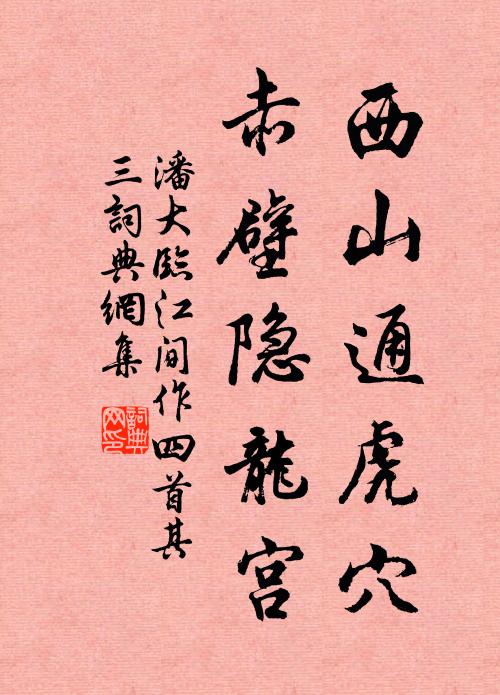 西山通虎穴
赤壁隐龍宫
潘大臨江间作四首其
三詞典網集
詞典网印